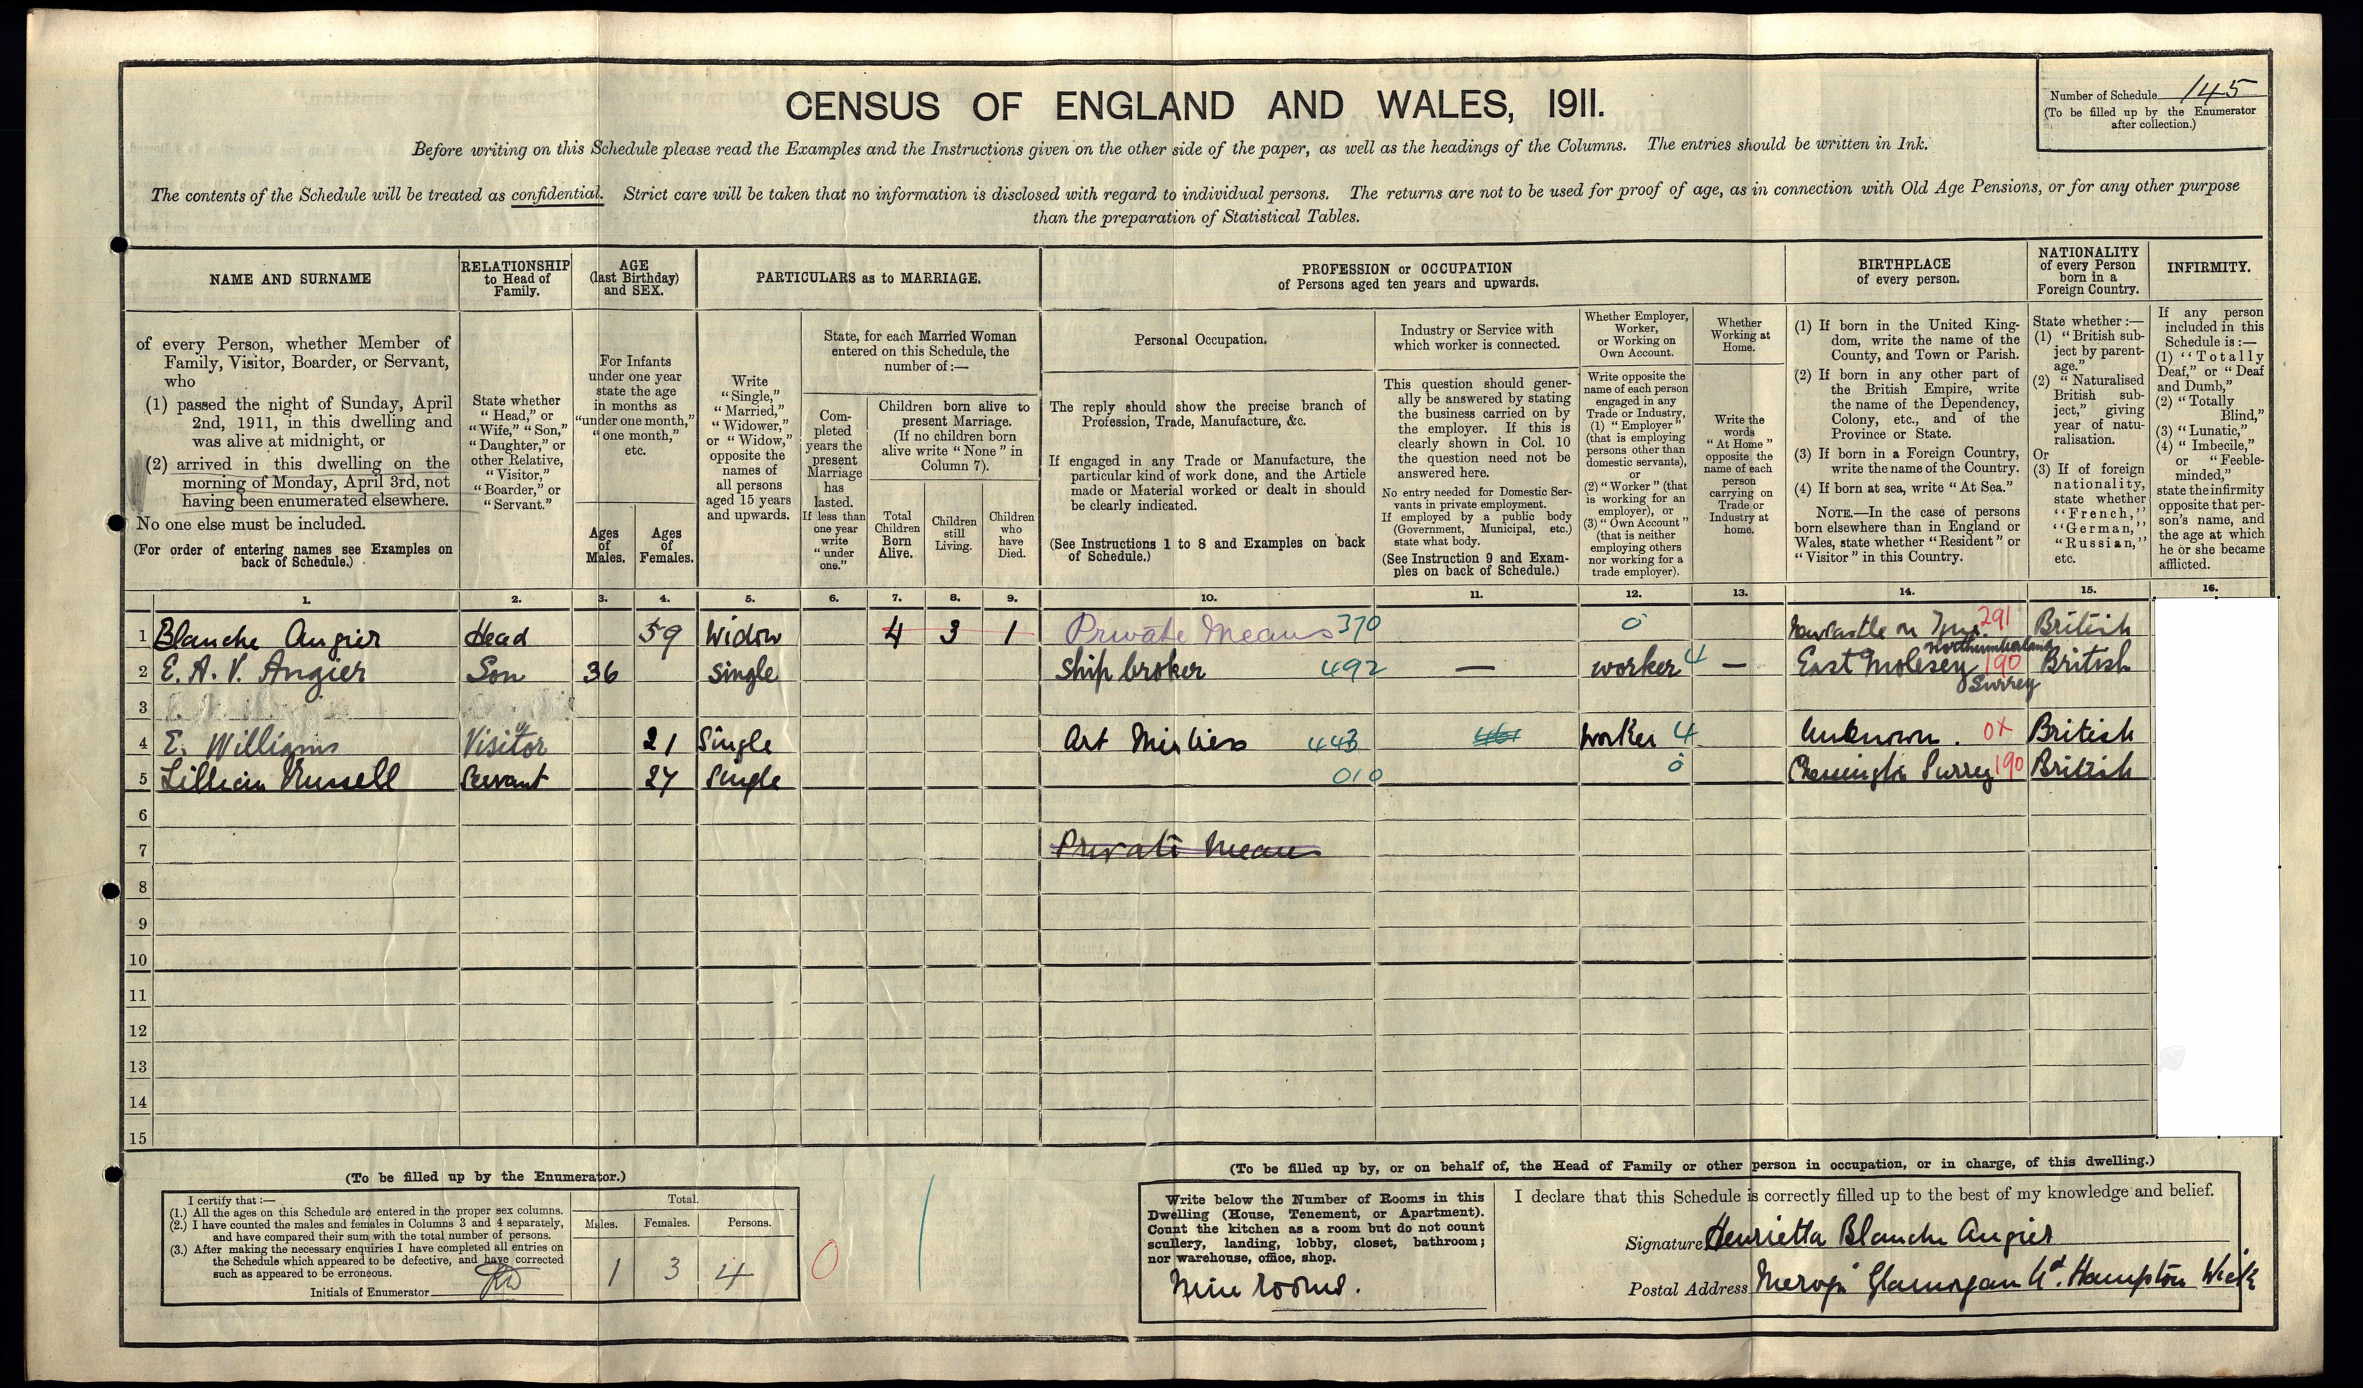 Number of Schedule 145
(To be filled up by the Enumerator
after collection.)
CENSUS OF ENGLAND AND WALES, 1911.
Before writing on this Schedule please read the Examples and the Instructions given on the other side of the paper, as well as the headings of the Columns. The entries should be written in Ink.
The contents of the Schedule will be treated as confidential. Strict care will be taken that no information is disclosed with regard to individual persons. The returns are not to be used for proof of age, as in connection with Old Age Pensions, or for any other purpose
than the preparation of Statistical Tables.
NAME AND SURNAME
of every Person, whether Member of
Family, Visitor, Boarder, or Servant,
who
(1) passed the night of Sunday, April
2nd, 1911, in this dwelling and
was alive at midnight, or
(2) arrived in this dwelling on the
morning of Monday, April 3rd, not
having been enumerated elsewhere.
No one else must be included.
(For order of entering names see Examples on
back of Schedule.)
RELATIONSHIP
to Head of
Family.
State whether
"Head," or
"Wife," "Son,"
"Daughter," or
other Relative,
"Visitor,"
"Boarder," or
"Servant."
AGE
(last Birthday)
and SEX.
For Infants
under one year
state the age
in months as
"under one month,"
"one month,"
etc.
Ages
of
Males.
Ages
of
Females.
PARTICULARS as to MARRIAGE.
Write
"Single,"
"Married,"
"Widower,"
or "Widow,"
opposite the
names of
all persons
aged 15 years
and upwards.
State, for each Married Woman
entered on this Schedule, the
number of:—
Com-
pleted
years the
present
Marriage
has
lasted.
If less than
one year
write
"under
one."
Children born alive to
present Marriage.
(If no children born
alive write "None" in
Column 7).
Total
Children
Born
Alive.
Children
still
Living.
Children
who
have
Died.
PROFESSION or OCCUPATION
of Persons aged ten years and upwards.
Personal Occupation.
The reply should show the precise branch of
Profession, Trade, Manufacture, &c.
If engaged in any Trade or Manufacture, the
particular kind of work done, and the Article
made or Material worked or dealt in should
be clearly indicated.
(See Instructions 1 to 8 and Examples on back
of Schedule.)
Industry or Service with
which worker is connected.
This question should gener-
ally be answered by stating
the business carried on by
the employer. If this is
clearly shown in Col. 10
the question need not be
answered here.
No entry needed for Domestic Ser-
vants in private employment.
If employed by a public body
(Government, Municipal, etc.)
state what body.
(See Instruction 9 and Exam-
ples on back of Schedule.)
Whether Employer,
Worker,
or Working on
Own Account.
Write opposite the
name of each person
engaged in any
Trade or Industry,
(1) "Employer"
(that is employing
persons other than
domestic servants),
or
(2) "Worker" (that
is working for an
employer), or
(3) "Own Account"
(that is neither
employing others
nor working for a
trade employer).
Whether
Working at
Home.
Write the
words
"At Home"
opposite the
name of each
person
carrying on
Trade or
Industry at
home.
BIRTHPLACE
of every person.
(1) If born in the United King-
dom, write the name of the
County, and Town or Parish.
(2) If born in any other part of
the British Empire, write
the name of the Dependency,
Colony, etc., and of the
Province or State.
(3) If born in a Foreign Country,
write the name of the Country.
(4) If born at sea, write "At Sea."
NOTE.—In the case of persons
born elsewhere than in England or
Wales, state whether "Resident" or
"Visitor" in this Country.
NATIONALITY
of every Person
born in a
Foreign Country.
State whether:—
(1) "British sub-
ject by parent-
age."
(2) "Naturalised
British sub-
ject," giving
year of natu-
ralisation.
Or
(3) If of foreign
nationality,
state whether
"French,"
"German,"
"Russian,"
etc.
INFIRMITY.
If any person
included in this
Schedule is:—
(1) "Totally
Deaf," or "Deaf
and Dumb,"
(2) "Totally
Blind,"
(3) "Lunatic,"
(4) "Imbecile,"
or "Feeble-
minded,"
state the infirmity
opposite that per-
son's name, and
the age at which
he or she became
afflicted.
1. 2. 3. 4. 5. 6. 7. 8. 9. 10. 11. 12. 13. 14. 15. 16.
1 Blanche Angier Head 59 Widow 4 3 1 Private Means 370 0 Newcastle on Tyne 291 British
Northumberland
2 E. A. V. Angier Son 36 Single Ship broker 492 — worker 4 — East Molesey 190 British
Surrey
3
4 E. Williams Visitor 21 Single Art Mistress 443 461 Worker 4 Unknown. OX British
5 Lillian Russell Servant 27 Single 010 0 Chessington Surrey 190 British
6
7 Private Means
8
9
10
11
12
13
14
15
(To be filled up by the Enumerator.)
I certify that:—
(1.) All the ages on this Schedule are entered in the proper sex columns.
(2.) I have counted the males and females in Columns 3 and 4 separately,
and have compared their sum with the total number of persons.
(3.) After making the necessary enquiries I have completed all entries on
the Schedule which appeared to be defective, and have corrected
such as appeared to be erroneous.
Initials of Enumerator
Total.
Males. Females. Persons.
1 3 4
0
(To be filled up by, or on behalf of, the Head of Family or other person in occupation, or in charge, of this dwelling.)
Write below the Number of Rooms in this
Dwelling (House, Tenement, or Apartment).
Count the kitchen as a room but do not count
scullery, landing, lobby, closet, bathroom;
nor warehouse, office, shop.
Nine rooms.
I declare that this Schedule is correctly filled up to the best of my knowledge and belief.
Signature Henrietta Blanche Angier
Postal Address Glamorgan Rd. Hampton Wick